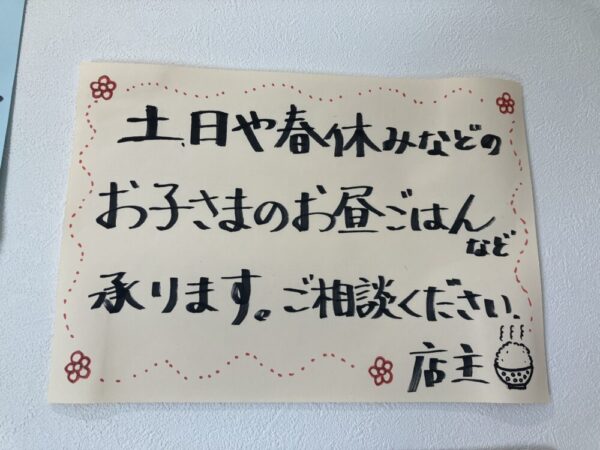 土、日や春休みなどの
お子さまのお昼ごはんなど
承ります。ご相談ください。
店主